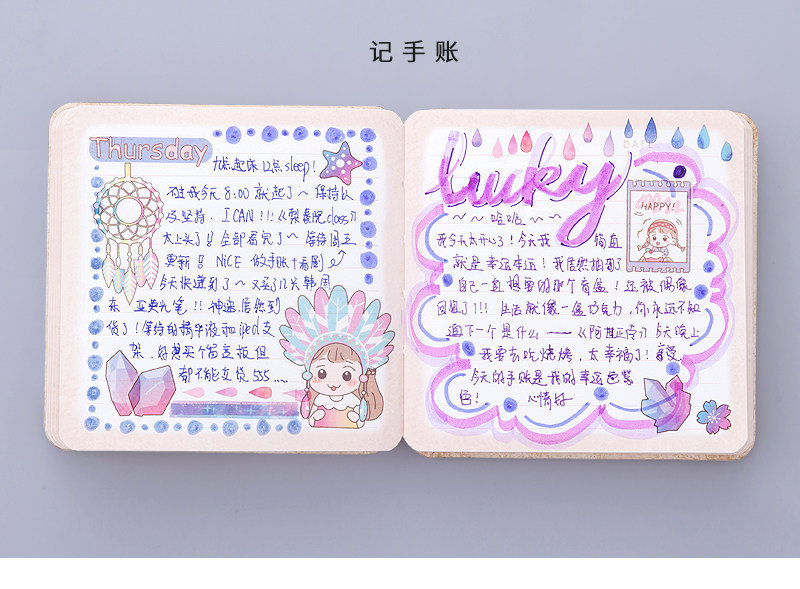 记手账
Thursday
九点起床 12点 sleep!
不过我今天 8:00 就起了~ 保持以
及坚持. I CAN!!!《梨泰院class》
太上头了!! 全部看完了~ 等待周五
更新!! NICE 做手账+看剧
今天快递到了~ 又买了几只韩国
东亚荧光笔!! 神速居然到
货了!等待的蜗牛液和iped支
架.好想买个富豆板但
都不能立货 555....
DATE
lucky
~~哈哈~~
我今天太开心了!今天我 简直
就是幸运本运!我居然抽到了
自己一直想要的那个盲盒!还被偶像
回复了!!!生活就像一盒巧克力,你永远不知
道下一个是什么——《阿甘正传》今天晚上
我要去吃烧烤,太幸福了!
今天的手账是我的幸运色紫
色! 心情好
HAPPY!